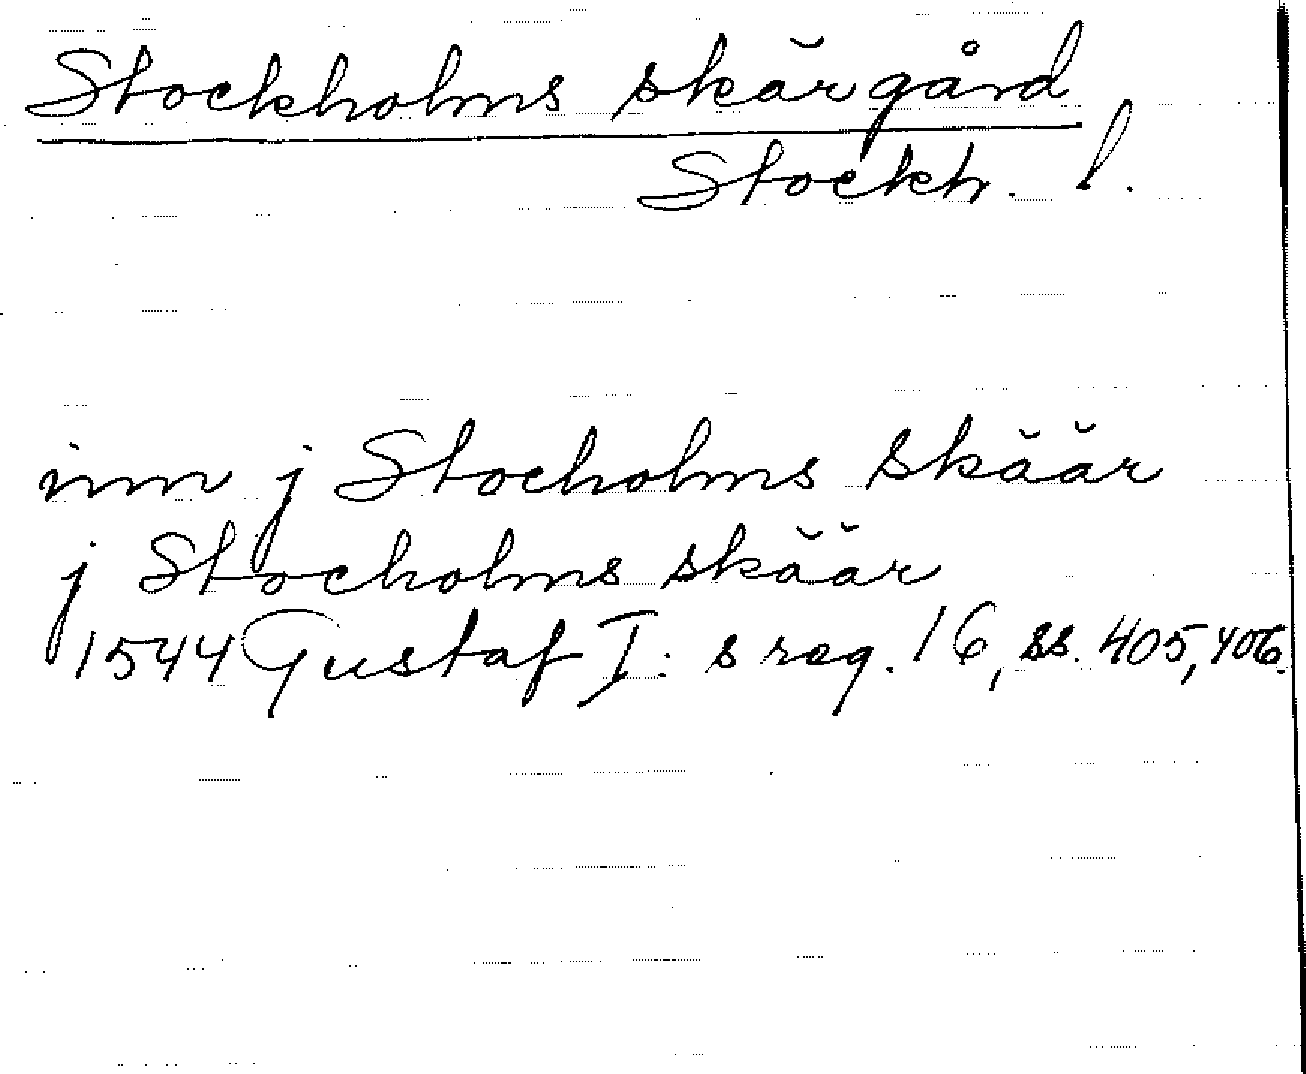 Stockholms skärgård
Stockh. l.
inn j Stocholms skäär
j Stocholms skäär
1544 Gustaf I:s reg. 16, ss. 405, 406.